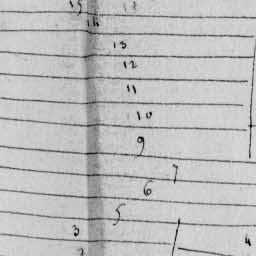 15 17
14
13
12
11
10
9
7
6
5
3 4
2